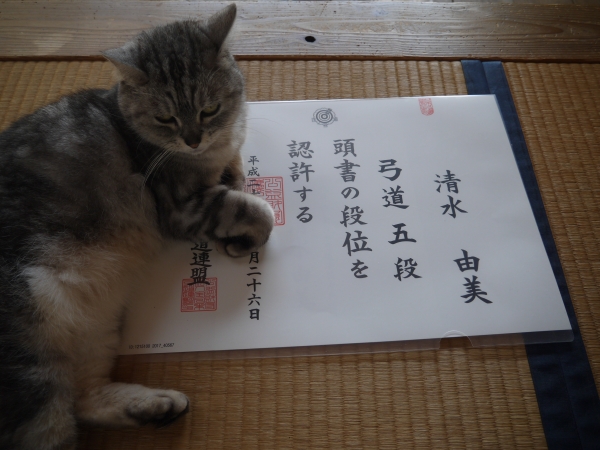 清水 由美
弓道 五段
頭書の段位を
認許する
平成二
月二十六日
道連盟